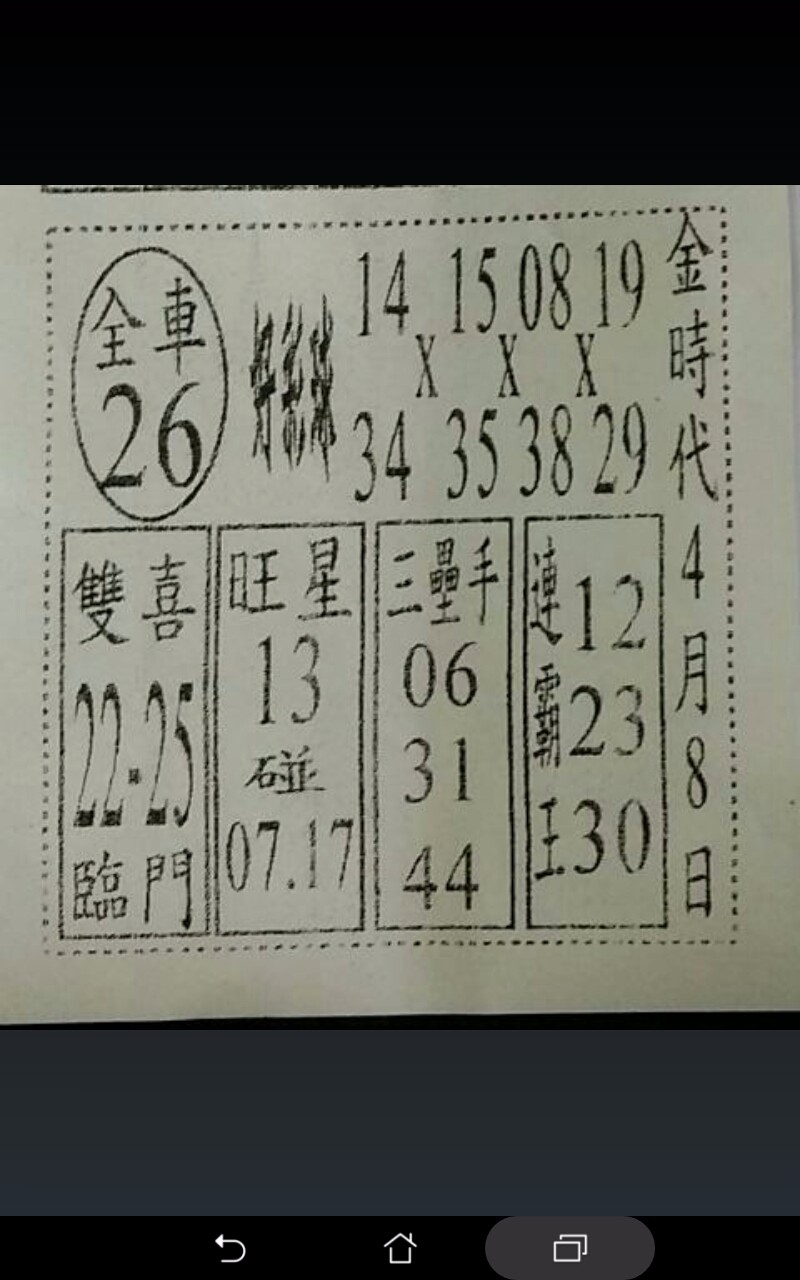 金時代4月8日
14 15 08 19
X X X
34 35 38 29
好彩球
全車
26
連霸王
12
23
30
三壘手
06
31
44
旺星
13
碰
07.17
雙喜
22.25
臨門